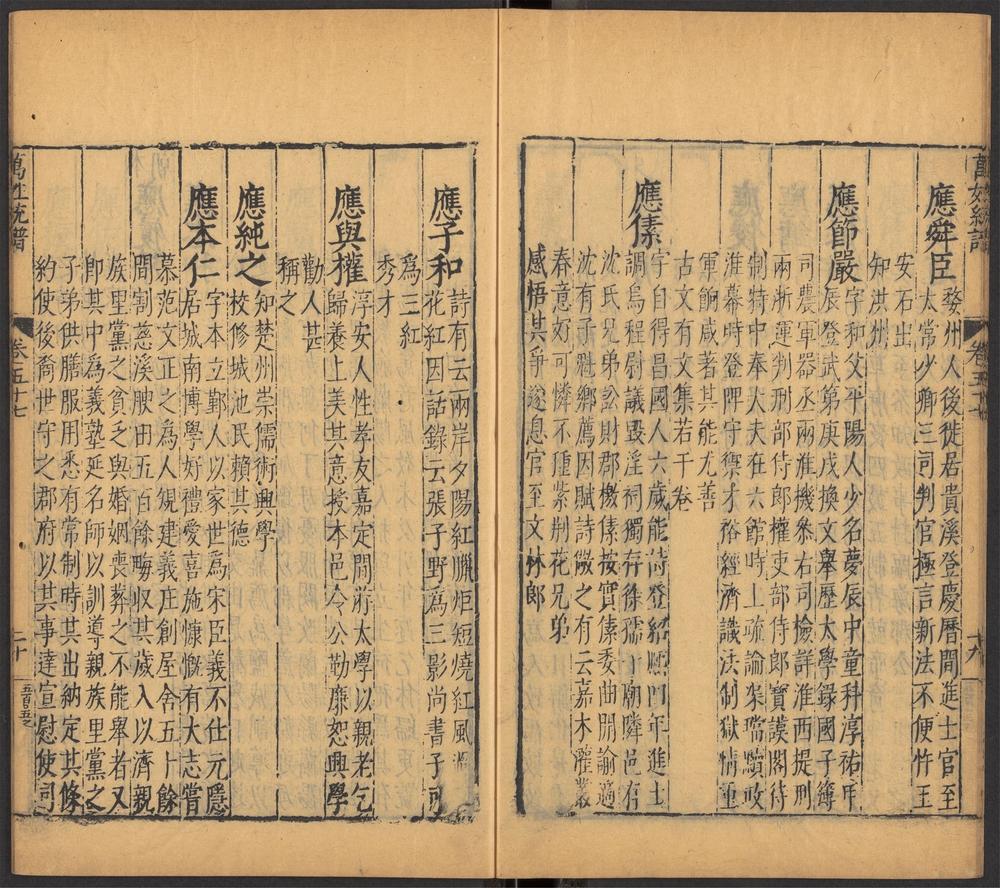 萬姓統譜
卷五十七
十九
應舜臣
婺州人後徙居貴溪登慶曆間進士官至
太常少卿三司判官極言新法不便忤王
安石出
知洪州
應節嚴
字和父平陽人少名夢辰中童科淳祐甲
辰登武第庚戌換文舉歷太學錄國子簿
司農軍器丞兩淮機叅右司檢詳淮西提刑
兩浙運判刑部侍郎權吏部侍郎寶謨閣待
制特中奉大夫在六館時上疏論柴璫瀆政
淮幕時登陴守禦才裕經濟讞決制獄情重
軍餉咸著其能尤善
古文有文集若干卷
應傃
字自得昌國人六歲能詩登紹熙四年進士
調烏程尉議毀淫祠獨存徐孺廟隣邑有
沈氏兄弟訟財郡檄傃按實傃委曲開諭適
沈有子尅鄉薦因賦詩餞之有云嘉木灌叢
春意好可憐不種紫荆花兄弟
感悟其爭遂息官至文林郎
應子和
詩有云兩岸夕陽紅臘炬短燒紅風
花紅因話錄云張子野為三影尚書子可
為三紅
秀才
應與權
淳安人性孝友嘉定間游太學以親老乞
歸養上美其意授本邑令公勤廉恕興學
勸人甚
稱之
應純之
知楚州崇儒術興學
校修城池民賴其德
應本仁
字本立鄞人以家世為宋臣義不仕元隱
居城南博學好禮愛喜施慷慨有大志嘗
慕范文正之為人規建義庄創屋舍五十餘
間割慈溪腴田五百餘畮収其歲入以濟親
族里黨之貧乏與婚姻喪葬之不能舉者又
卽其中為義塾延名師以訓導親族里黨之
子弟供膳服用悉有常制時其出納定其條
約使後裔世守之郡府以其事達宣慰使司
萬姓統譜
卷五十七
二十